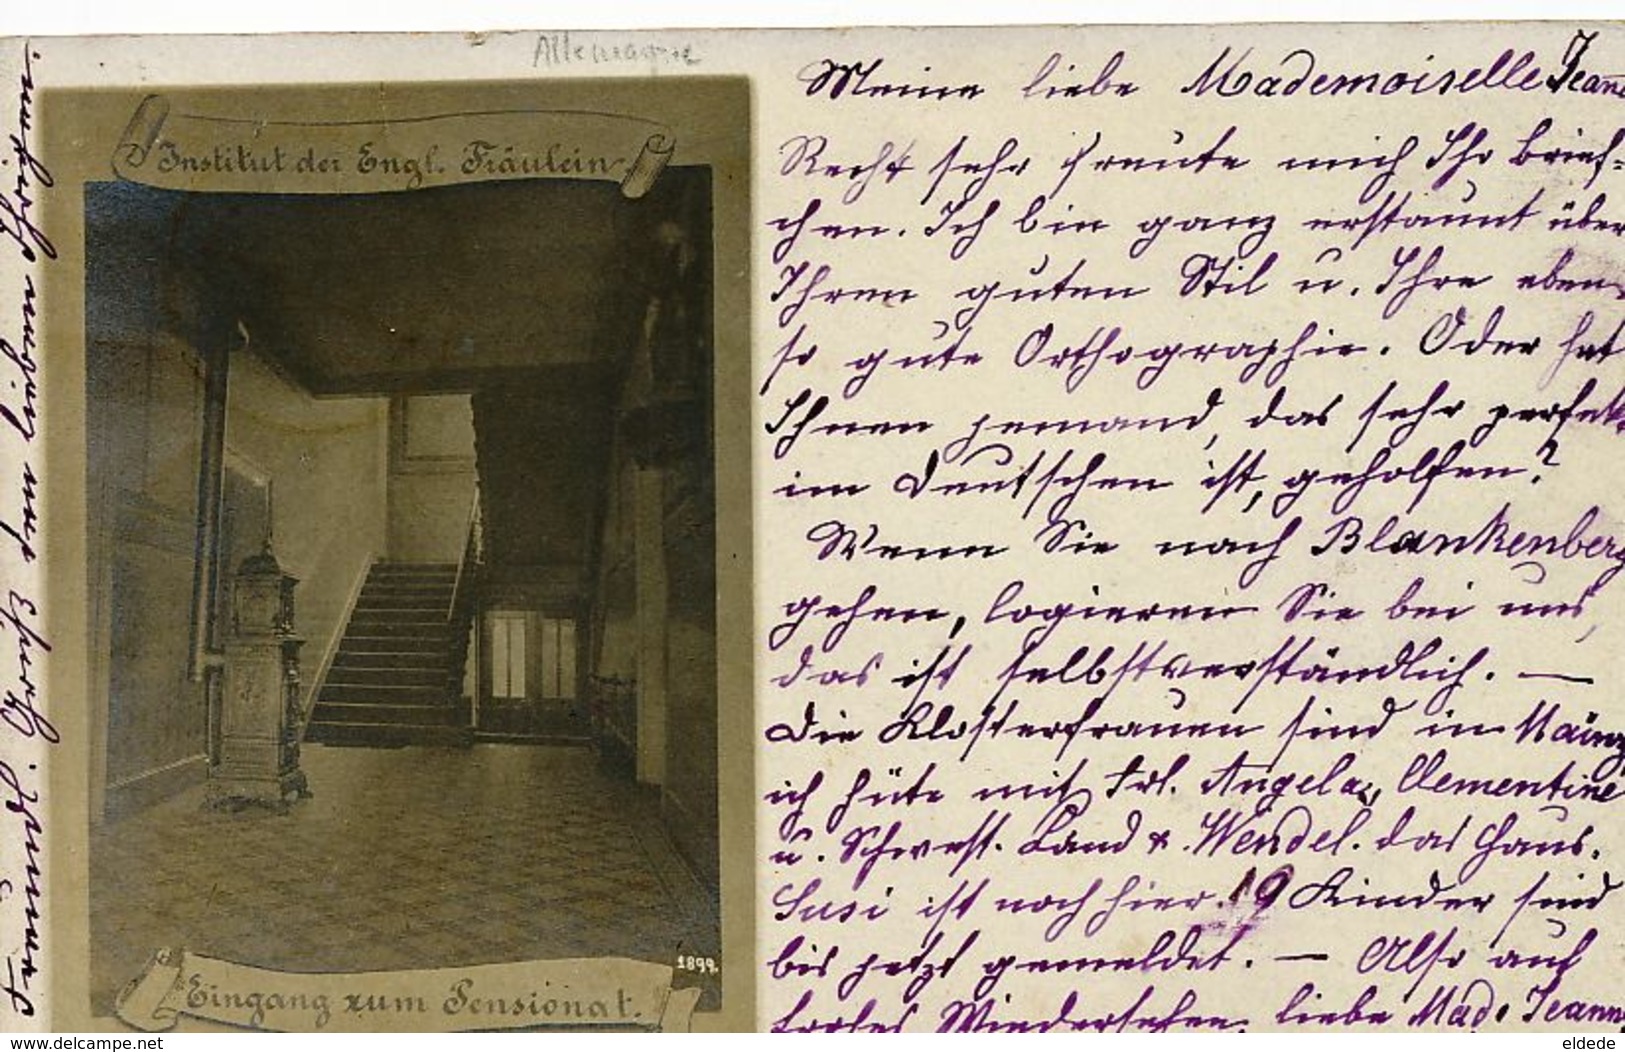 Allemagne
Institut der Engl. Fräulein
1899.
Eingang zum Pensionat.
Meine liebe Mademoiselle Jeann
Recht sehr freute mich Ihr Brief-
chen. Ich bin ganz erstaunt über
Ihren guten Stil u. Ihre eben-
so gute Orthographie. Oder hat
Ihnen jemand, das sehr perfekt
im Deutschen ist, geholfen?
Wenn Sie nach Blankenberg
gehen, logieren Sie bei uns,
das ist selbstverständlich. —
Die Klosterfrauen sind in Mainz
ich hüte mit Frl. Angela, Clementine
u. Schwest. Land & Wendel. das Haus.
Susi ist noch hier. 19 Kinder sind
bis jetzt gemeldet. — Also auf
frohes Wiedersehen, liebe Mad. Jeann
Ihrigen
delcampe.net
eldede